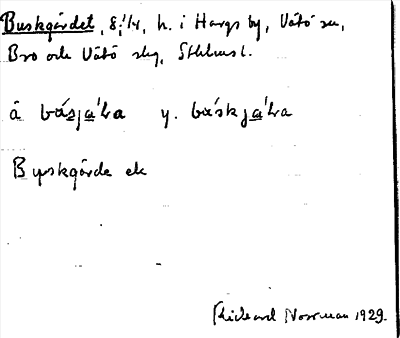 Buskgärdet, 8:1/4, h. i Hargs by, Vätö sn,
Bro och Vätö slg, Sthlms l.
å básja'ḷra y. báskja'ḷra
Byskgärde ek
Rickard Norrman 1929.